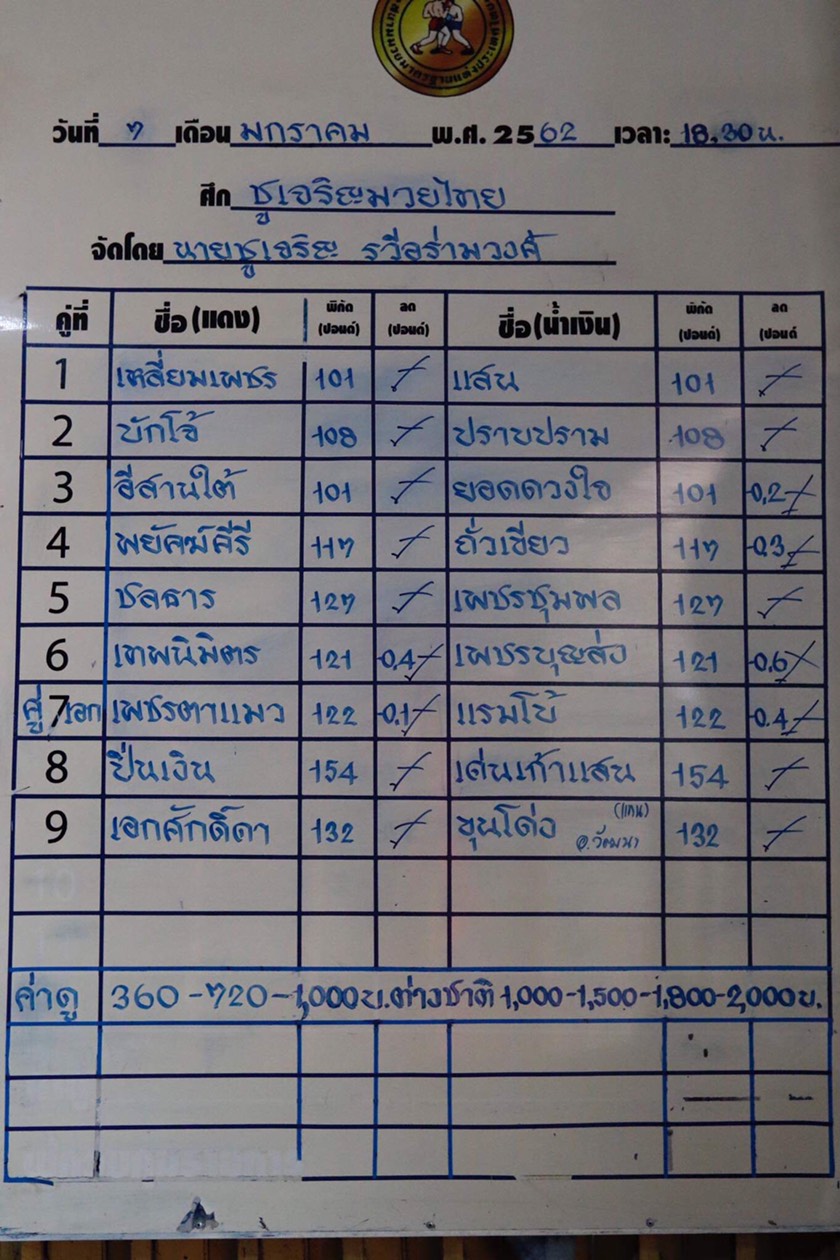 มวยมาตรฐานแห่งประเทศ
วันที่ ๗ เดือน มกราคม พ.ศ. 2562 เวลา: 18.30 น.
ศึก ชูเจริญมวยไทย
จัดโดย นายชูเจริญ รวีอร่ามวงศ์
คู่ที่ ชื่อ (แดง) พิกัด (ปอนด์) ลด (ปอนด์) ชื่อ (น้ำเงิน) พิกัด (ปอนด์) ลด (ปอนด์
1 เหลี่ยมเพชร 101 แสน 101
2 บักโจ้ 108 ปราบปราม 108
3 อีสานใต้ 101 ยอดดวงใจ 101 -0,2
4 พยัคฆ์คีรี 11๗ ถั่วเขียว 11๗ -0.3
5 ชลธาร 12๗ เพชรชุมพล 12๗
6 เทพนิมิตร 121 -0,4 เพชรบุญส่ง 121 -0.6
คู่ 7 เอก เพชรตาแมว 122 -0.1 แรมโบ้ 122 -0.4
8 ปืนเงิน 154 เด่นเก้าแสน 154
9 เอกศักดิ์ดา 132 ขุนโต่อ (แทน) อ.วัฒนา 132
ค่าดู 360 - ๗20 - 1,000 บ. ต่างชาติ 1,000-1,500-1,800-2,000 บ.